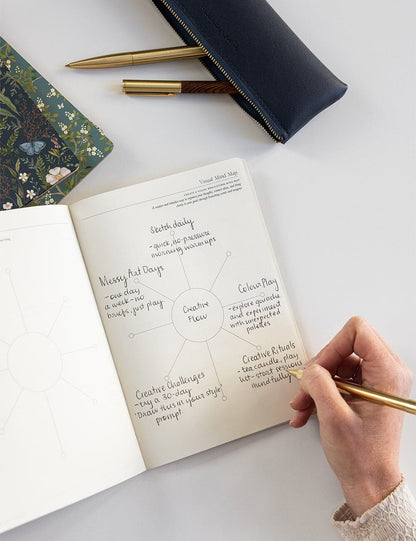 Visual Mind Map
Sketch daily
- quick, no-pressure
morning warmups
Messy Art Days
- one day
a week - no
briefs, just play
Creative
Flow
Colour Play
- explore gouache
and experiment
with unexpected
palettes
Creative Rituals
- tea, candle, playlist - start sessions
mindfully
Creative Challenges
- try a 30-day
'Draw this in your style'
prompt.